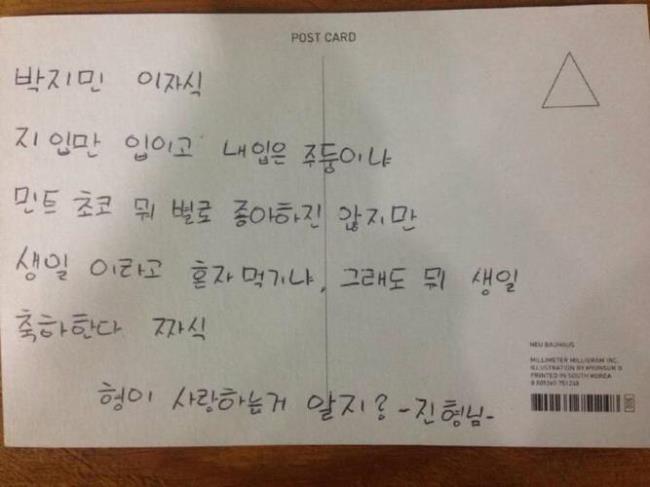 POST CARD
박지민 이자식
지 입만 입이고 내입은 주둥이냐
민트 초코 뭐 별로 좋아하진 않지만
생일 이라고 혼자먹기냐, 그래도 뭐 생일
축하한다 짜식
형이 사랑하는거 알지? -진형님-
NEU BAUHAUS
MILLIMETER MILLIGRAM INC.
ILLUSTRATION BY HYUNSUN G
PRINTED IN SOUTH KOREA